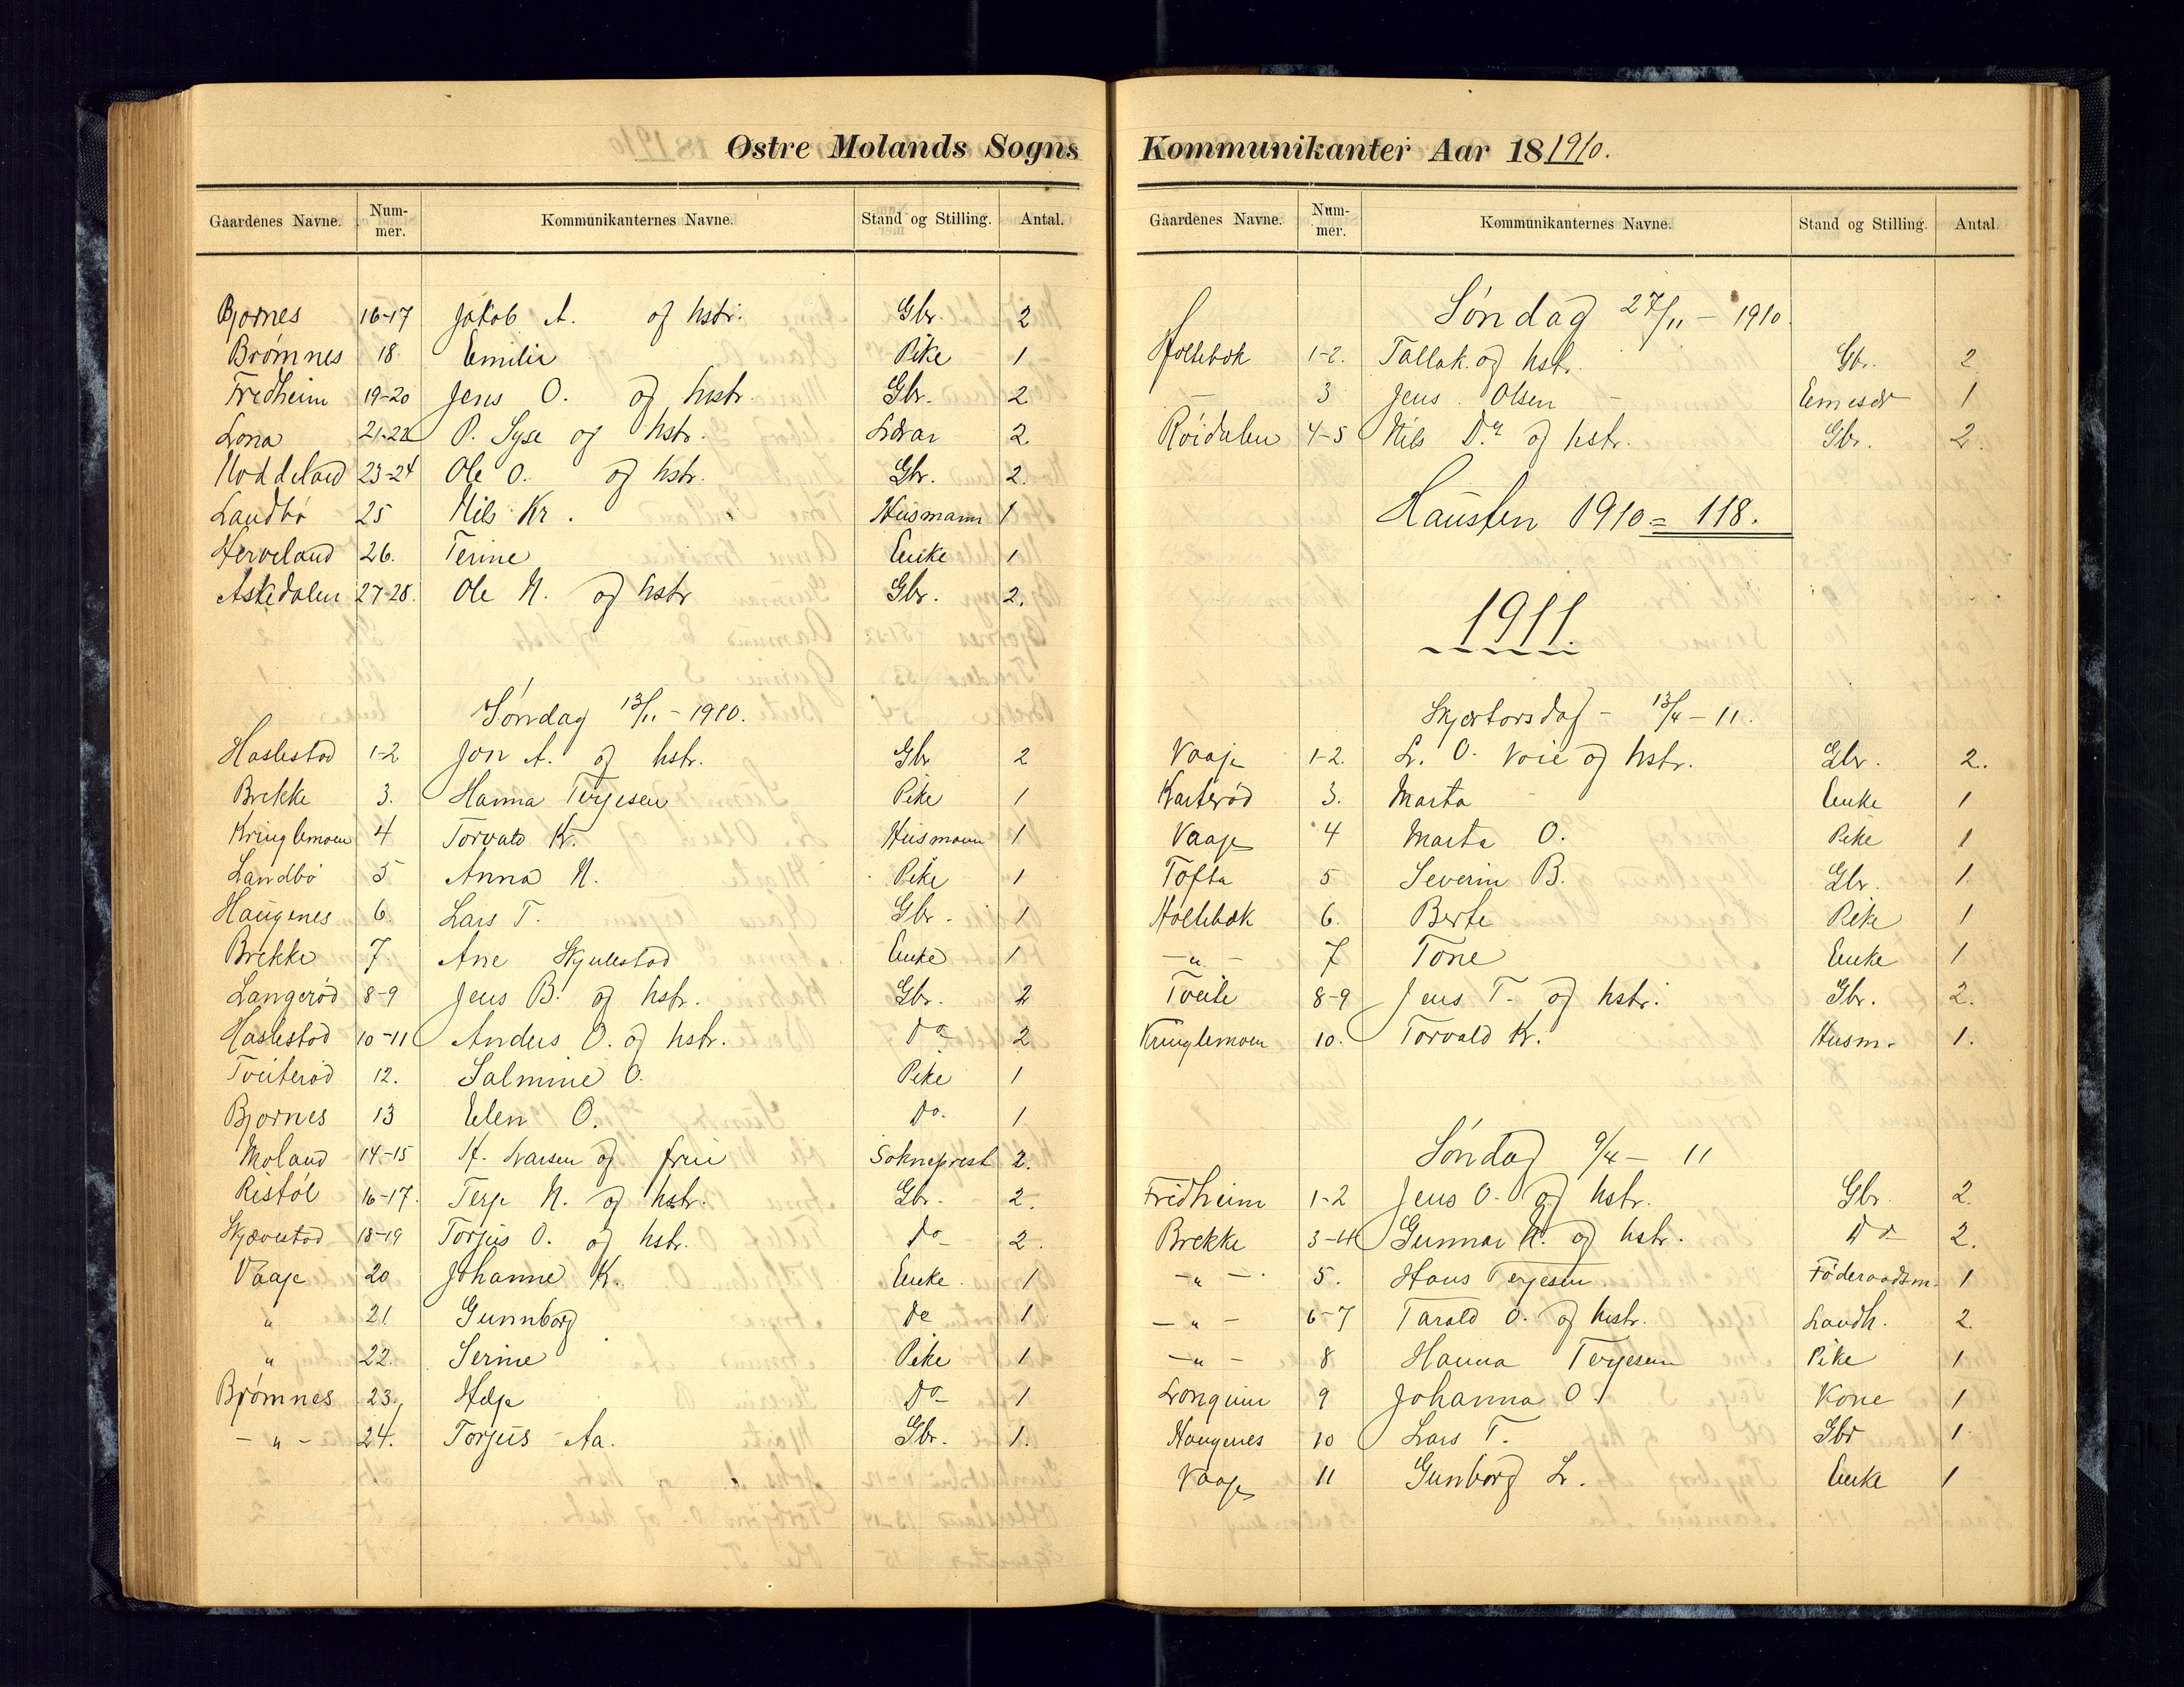 Østre Molands Sogns
Gaardenes Navne. Nummer. Kommunikanternes Navne. Stand og Stilling. Antal.
Bjornes 16-17 Jakob A. og hstr. Gbr. 2
Brømnes 18 Emilie Pike 1
Fredheim 19-20 Jens O. og hustr. Gbr. 2
Lona 21-22 P. Syse og hstr. Lærar 2
Noddeland 23-24 Ole O. og hstr. Gbr. 2.
Landbø 25 Nils Kr. Husmann 1
Herveland 26. Terine Enke 1
Askedalen 27-28. Ole N. og hstr Gbr. 2.
Søndag 13/11 - 1910.
Haslestad 1-2 Jon A. og hstr. Gbr 2
Brekke 3. Hanna Terjesen Pike 1
Kringlemoen 4 Torvald Kr. Husmann 1
Landbø 5 Anna N. Pike 1
Haugenes 6. Lars T. Gbr. 1
Brekke 7. Ane Skjulestad Enke 1
Langerød 8-9 Jens B. og hstr. Gbr. 2
Haslestad 10-11 Anders O. og hstr. Do 2
Tveiterød 12. Salmine O. Pike 1
Bjornes 13 Elen O. Do. 1
Moland 14-15 H. Larsen og frue Sokneprest 2.
Ristøl 16-17. Terje N. og hstr. Gbr. 2.
Skjævestad 18-19 Torjus O. og hstr. Do 2.
Vaaje 20 Johanne K. Enke 1
" 21 Gunnborg Do 1
" 22. Serine Pike 1
Brømnes 23. Helje Do 1
- " - 24. Torjus Aa. Gbr. 1.
Kommunikanter Aar 181910.
Gaardenes Navne. Nummer. Kommunikanternes Navne. Stand og Stilling. Antal.
Søndag 27/11 - 1910.
Holtebæk 1-2. Tallak. og hstr. Gbr. 2
- 3 Jens Olsen 1
Røidalen 4-5 Nils D. og hstr. Gbr. 2.
Hausten 1910 = 118.
1911.
Skjærtorsdag - 13/4 - 11.
Vaaje 1-2. L. O. Voie og hstr. Gbr. 2.
Karterød 3. Marta Enke 1
Vaaje 4 Marta O. Pike 1
Tofta 5 Severin B. Gbr. 1.
Holtebæk 6. Berte Pike 1
- " - 7 Tone Enke 1
Tveite 8-9 Jens T. og hstr. Gbr. 2.
Kringlemoen 10. Torvald Kr. Husm. 1.
Søndag 9/4 - 11
Fridheim 1-2 Jens O. og hstr. Gbr. 2.
Brekke 3-4 Gunnar N. og hstr. Do 2.
- " - 5. Hans Terjesen Føderaadsm. 1
- " - 6-7 Tarald O. og hustr. Landh. 2.
- " - 8 Hanna Terjesen Pike 1
9 Johanna O. Kone 1
Haugenes 10 Lars T. Gbr 1
Vaaje 11 Gunborg L. Enke 1